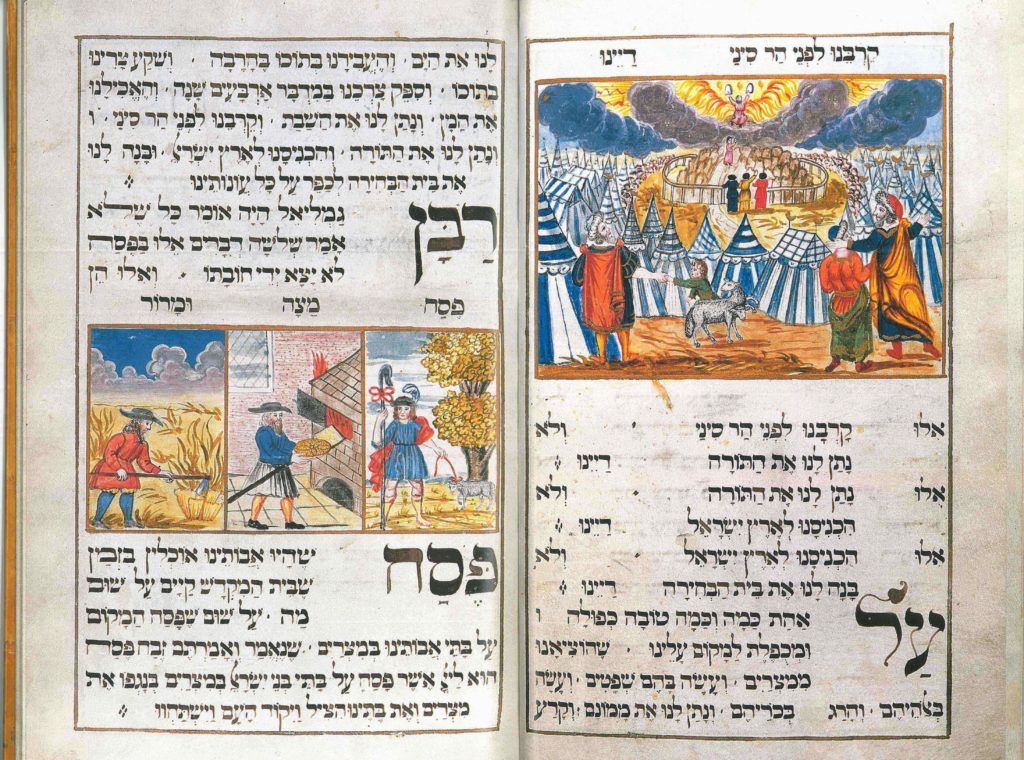 קרבנו לפני הר סיני דיינו
אלו קרבנו לפני הר סיני ולא
נתן לנו את התורה דיינו
אלו נתן לנו את התורה ולא
הכניסנו לארץ ישראל דיינו
אלו הכניסנו לארץ ישראל ולא
בנה לנו את בית הבחירה דיינו
על אחת כמה וכמה טובה כפולה ו
ומכפלת למקום עלינו · שהוציאנו
ממצרים · ועשה בהם שפטים · ועשה
באלהיהם · והרג בכריהם · ונתן לנו את ממונם · וקרע
לנו את הים · והעבירנו בתוכו בחרבה · ושקע צרינו
בתוכו · וספק צרכנו במדבר ארבעים שנה · והאכילנו
את המן · ונתן לנו את השבת · וקרבנו לפני הר סיני · ו
ונתן לנו את התורה · והכניסנו לארץ ישראל · ובנה לנו
את בית הבחירה לכפר על כל עונותינו
רבן גמליאל היה אומר כל שלא
אמר שלשה דברים אלו בפסח
לא יצא ידי חובתו · ואלו הן
פסח מצה ומרור
פסח שהיו אבותינו אוכלין בזמן
שבית המקדש קיים על שום
מה · על שום שפסח המקום
על בתי אבותינו במצרים · שנאמר ואמרתם זבח פסח
הוא ליי אשר פסח על בתי בני ישראל במצרים בנגפו את
מצרים ואת בתינו הציל ויקוד העם וישתחוו